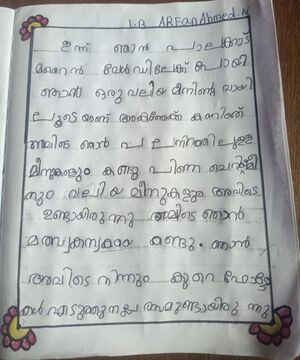 1.B ARFan Ahmed.N
ഇന്ന് ഞാൻ പാലക്കാട്
മറൈൻ വേൾഡിലേക്ക് പോയി
ഞാൻ ഒരു വലിയ മീനിന്റെ വായി
ലൂടെ യാണ് അകത്തേക്ക് കയറിയത്
അവിടെ ഞൻ പ ല നിറത്തിലുള്ള
മീനുകളും കണ്ടു പിന്നെ ചെറുമീ
നും വലി യ മീനുകളും അവിടെ
ഉണ്ടായിരു ന്നു അവിടെ ഞാൻ
മത്സ്യകന്യകയെ കണ്ടു. ഞാൻ
അവിടെ നിന്നും കുറെ ഫോട്ടോ
കൾ എടുത്തു നല്ല രസമുണ്ടായിരു ന്നു